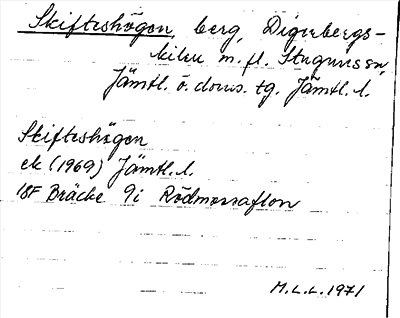 Skifteshögen, berg, Digerbergs-
kilen m. fl. Stuguns sn,
Jämtl. ö. doms. tg. Jämtl. l.
Skifteshögen
ek (1969) Jämtl. l.
18F Bräcke 9i Rödmossaflon
M.L.L. 1971